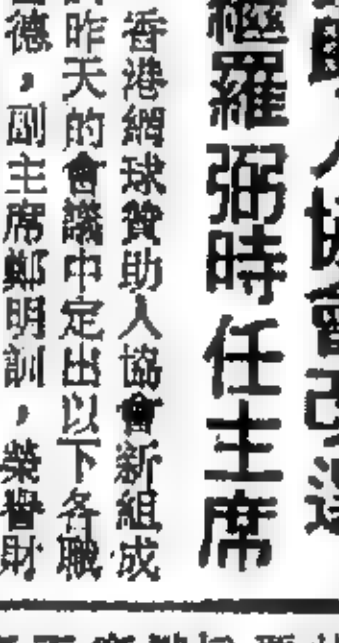 助人協會改選
羅弼時任主席
香港網球贊助人協會新組成
昨天的會議中定出以下各職
德，副主席鄭明訓，榮譽財